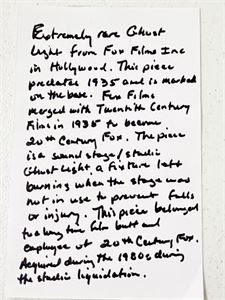 Extremely rare Ghost
Light from Fox Films Inc
in Hollywood. This piece
predates 1935 and is marked
on the base. Fox Films
merged with Twentith Century
Films in 1935 to become
20th Century Fox. The piece
is a sound stage/studio
Ghost Light, a fixture left
burning when the stage was
not in use to prevent falls
or injury. This piece belonged
to a long time film buff and
employee of 20th Century Fox.
Acquired during the 1980s during
the studio liquidation.